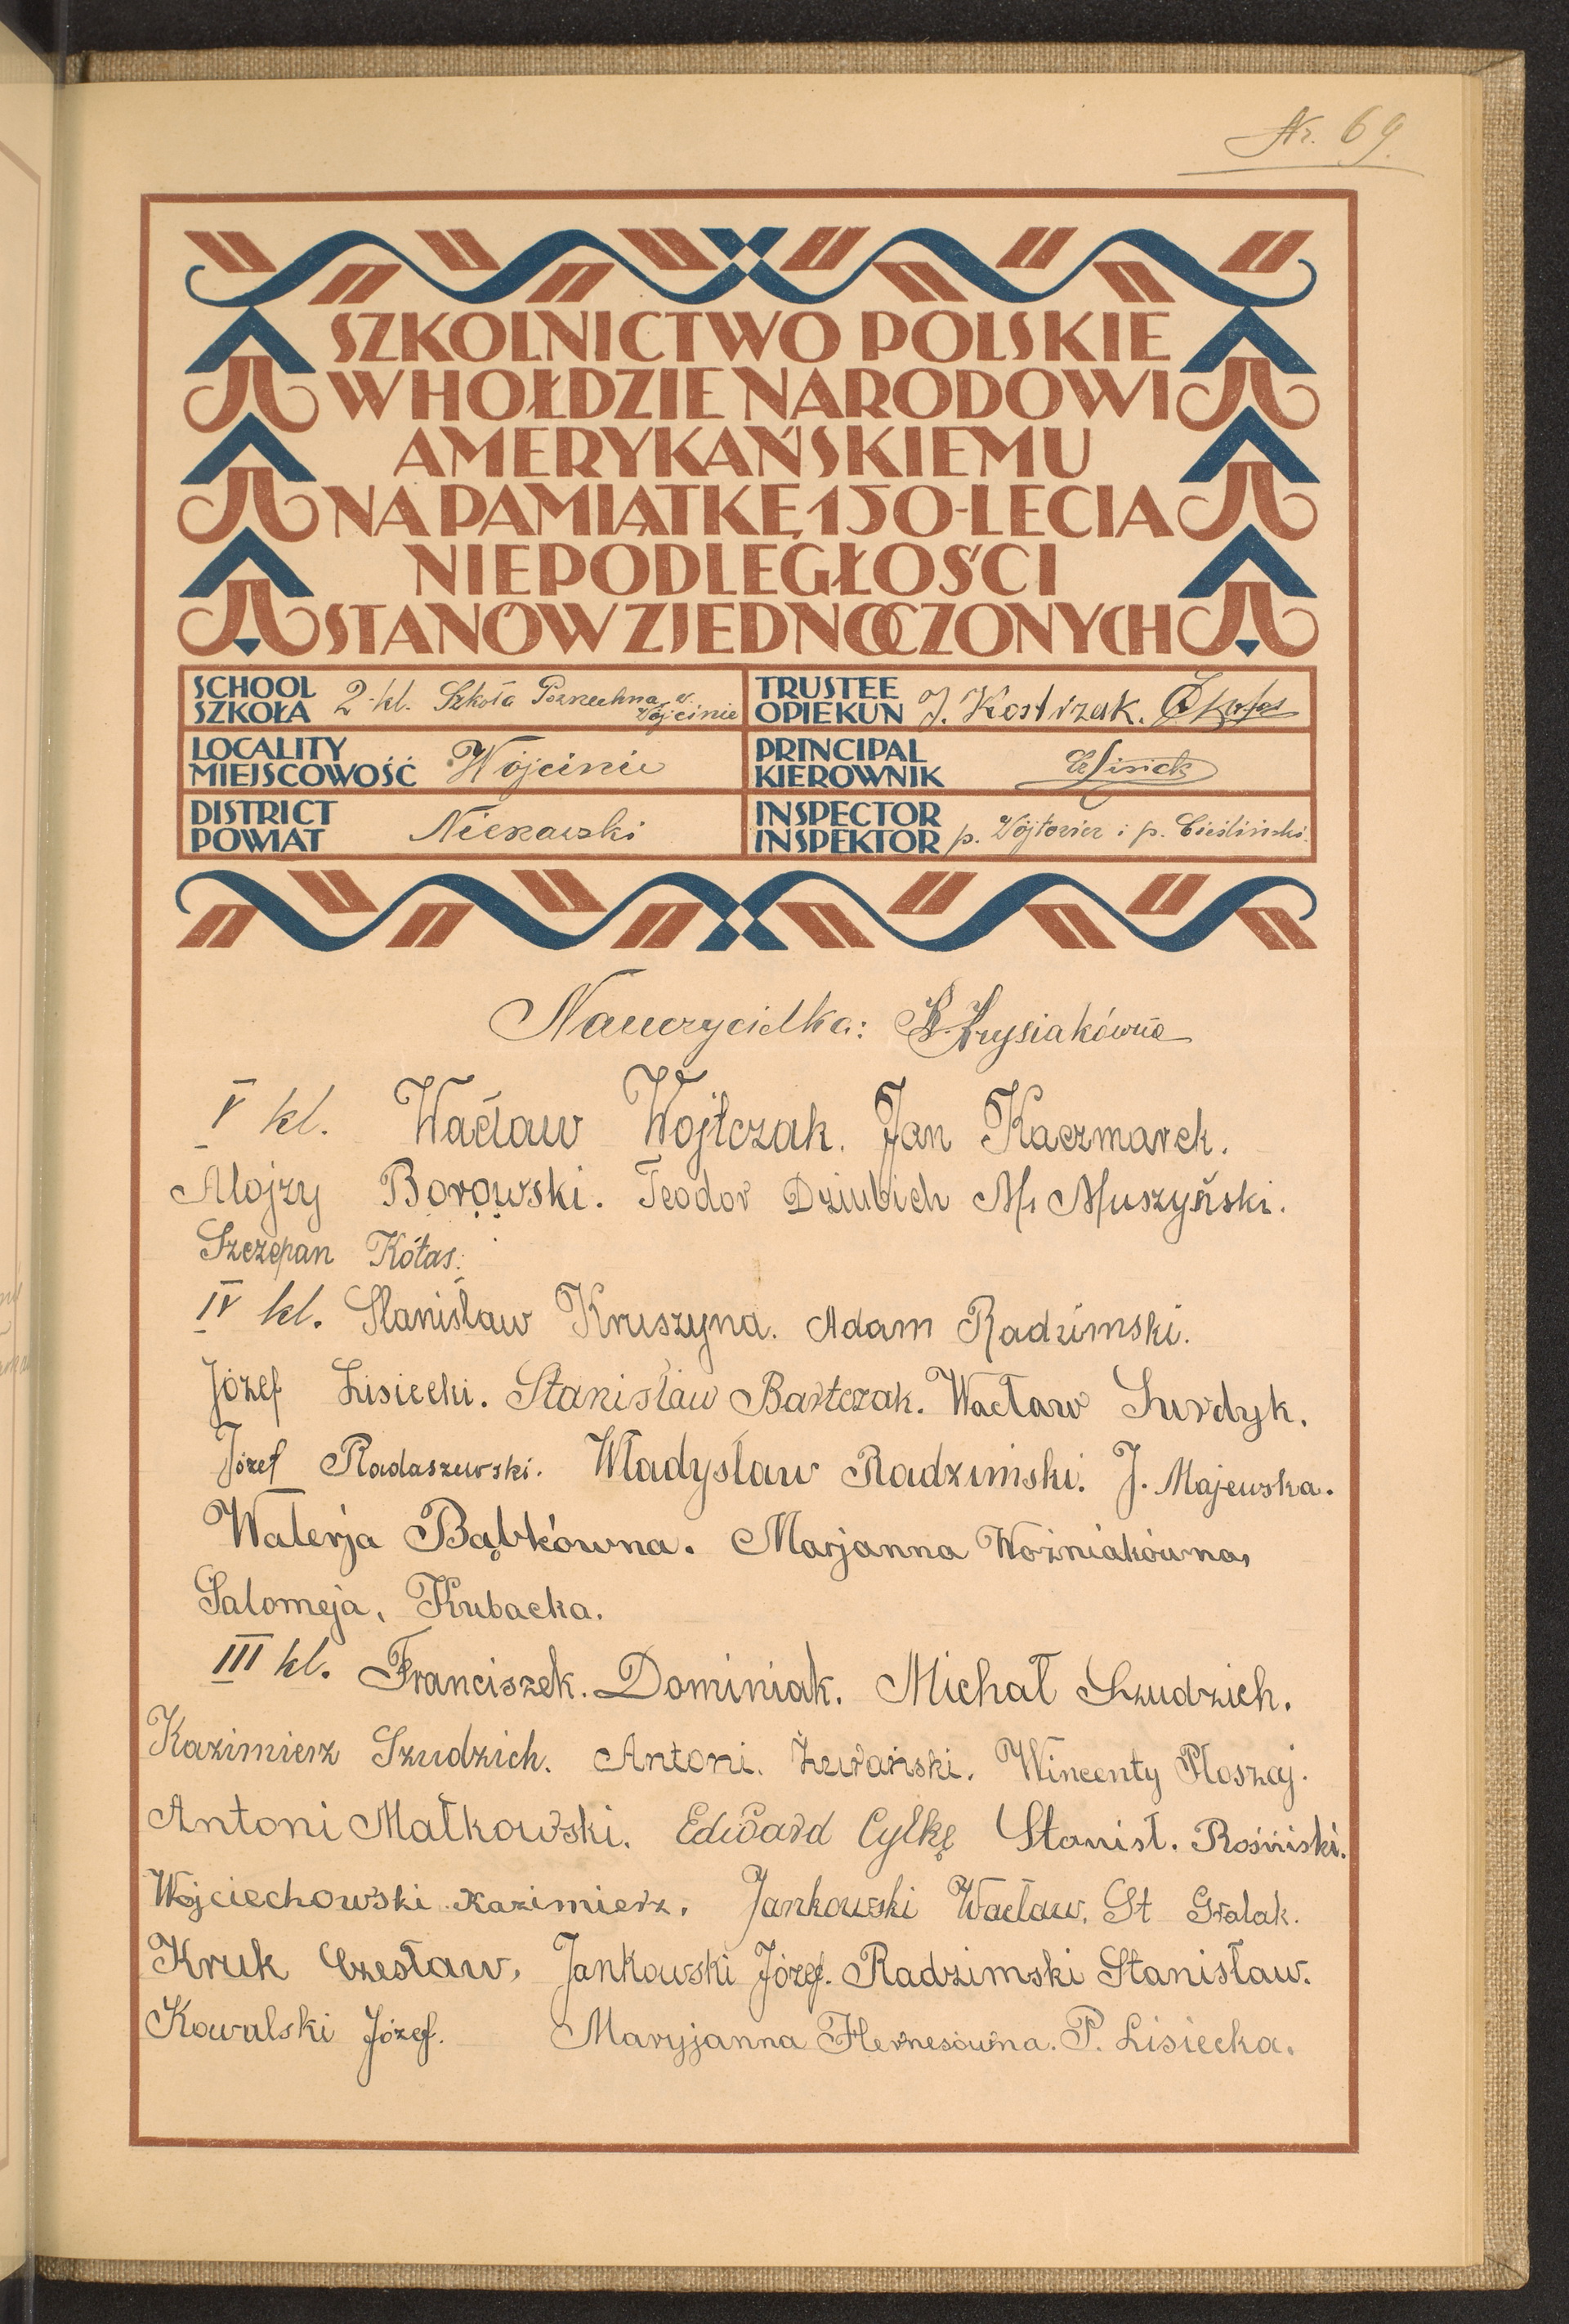 Nr. 69.
SZKOLNICTWO POLSKIE
W HOŁDZIE NARODOWI
AMERYKAŃSKIEMU
NA PAMIĄTKĘ 150-LECIA
NIEPODLEGŁOŚCI
STANÓW ZJEDNOCZONYCH
SCHOOL
SZKOŁA 2-kl. Szkoła Powszechna w Wójcinie
TRUSTEE
OPIEKUN J. Kostrzak.
LOCALITY
MIEJSCOWOŚĆ Wójcinie
PRINCIPAL
KIEROWNIK
DISTRICT
POWIAT Nieszawski
INSPECTOR
INSPEKTOR p. Wójtowicz i p. Cieśliński.
Nauczycielka:
V kl. Wacław Wojtczak. Jan Kaczmarek.
Alojzy Borowski. Teodor Dziubich M. Muszyński.
Szczepan Kótas.
IV kl. Stanisław Kruszyna. Adam Radzimski.
Józef Lisiecki. Stanisław Bartczak. Wacław Surdyk.
Józef Radaszewski. Władysław Radzimski. J. Majewska.
Walerja Bąbkówna. Marjanna Woźniakówna,
Salomeja, Kubacka.
III kl. Franciszek. Dominiak. Michał Szudzich.
Kazimierz Szudzich. Antoni. Wincenty Płoszaj.
Antoni Małkowski. Edward Cylkę Stanisł. Rosiński.
Wojciechowski Kazimierz. Jankowski Wacław. St Gralak.
Kruk Czesław, Jankowski Józef. Radzimski Stanisław.
Kowalski Józef. Maryjanna Hernesówna. P. Lisiecka.